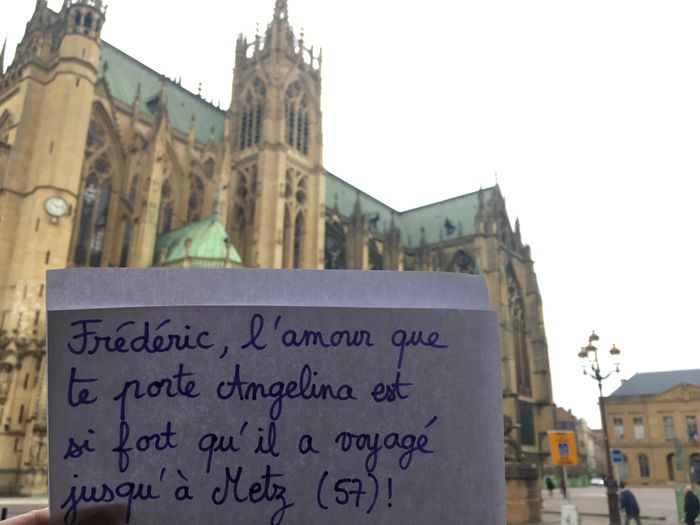 Frédéric, l'amour que
te porte Angelina est
si fort qu'il a voyagé
jusqu'à Metz (57)!